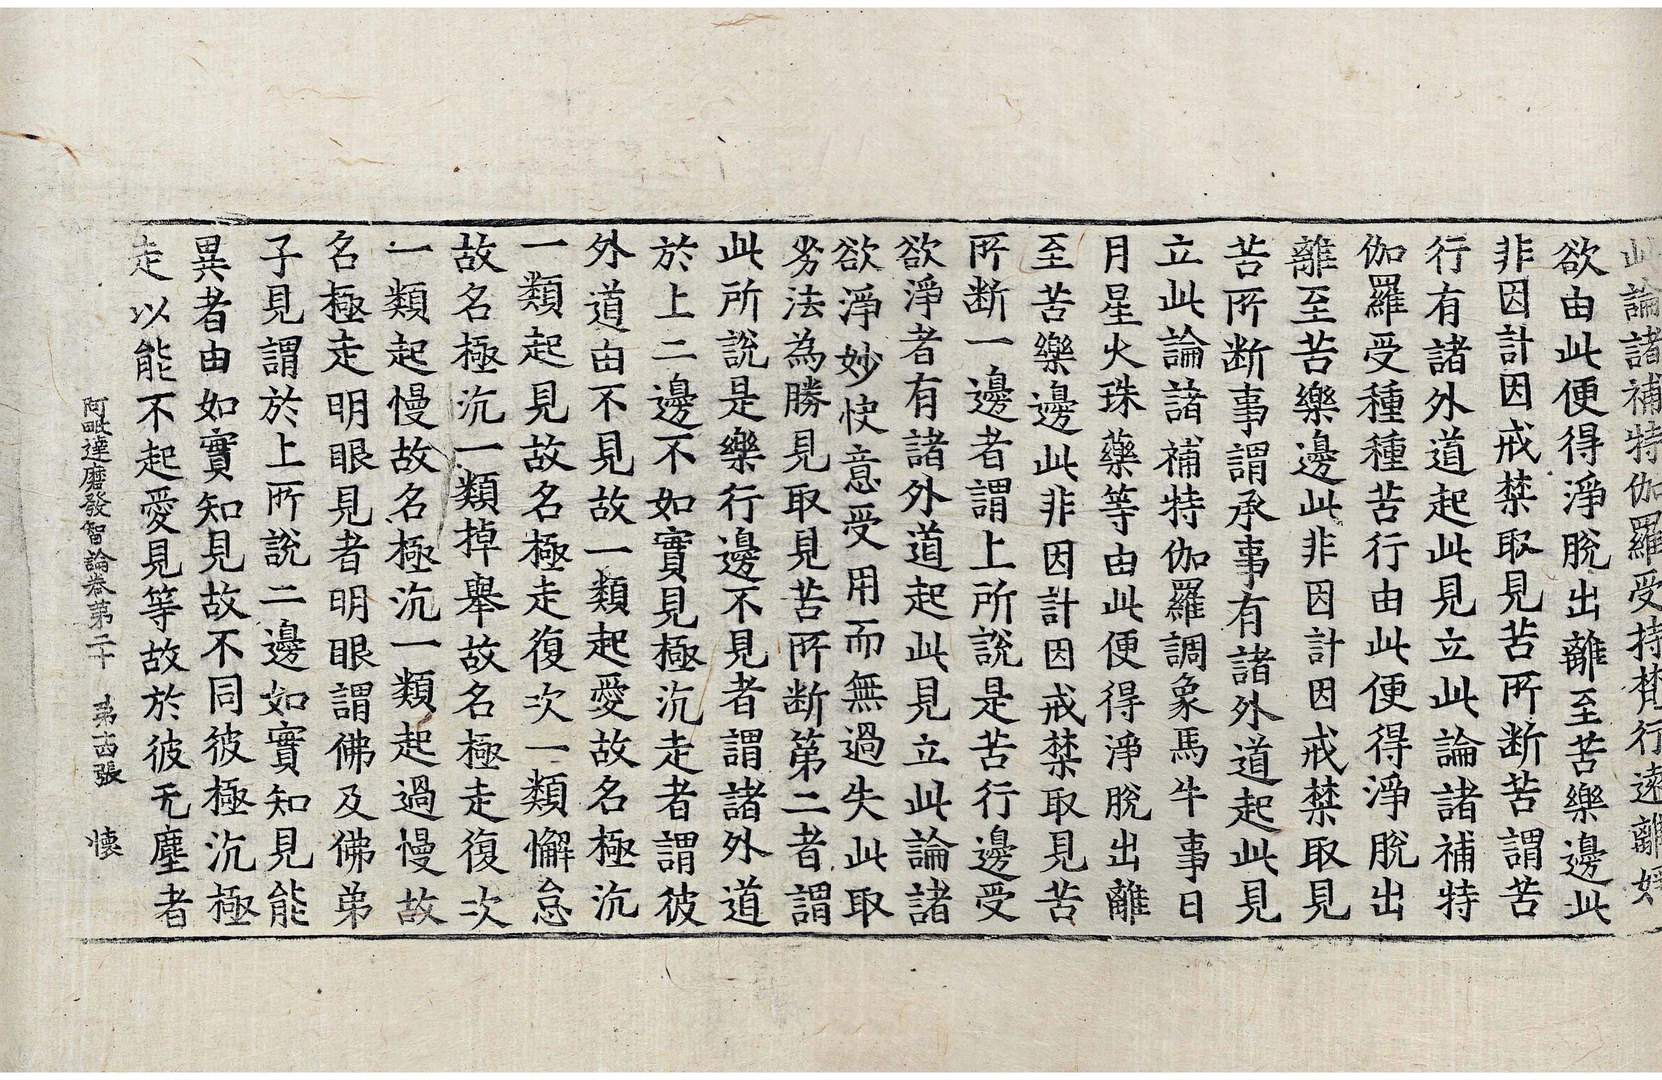 此論諸補特伽羅受持梵行遠離婬
欲由此便得淨脫出離至苦樂邊此
非因計因戒禁取見苦所断苦謂苦
行有諸外道起此見立此論諸補特
伽羅受種種苦行由此便得淨脫出
離至苦樂邊此非因計因戒禁取見
苦所断事謂承事有諸外道起此見
立此論諸補特伽羅調象馬牛事日
月星火珠藥等由此便得淨脫出離
至苦樂邊此非因計因戒禁取見苦
所断一邊者謂上所說是苦行邊受
欲淨者有諸外道起此見立此論諸
欲淨妙快意受用而無過失此取
劣法為勝見取見苦所断第二者謂
此所說是樂行邊不見者謂諸外道
於上二邊不如實見極沉走者謂彼
外道由不見故一類起愛故名極沉
一類起見故名極走復次一類懈怠
故名極沉一類掉舉故名極走復次
一類起慢故名極沉一類起過慢故
名極走明眼見者明眼謂佛及佛弟
子見謂於上所說二邊如實知見能
異者由如實知見故不同彼極沉極
走以能不起愛見等故於彼无塵者
阿毗達磨發智論卷第二十 第十四張 懷